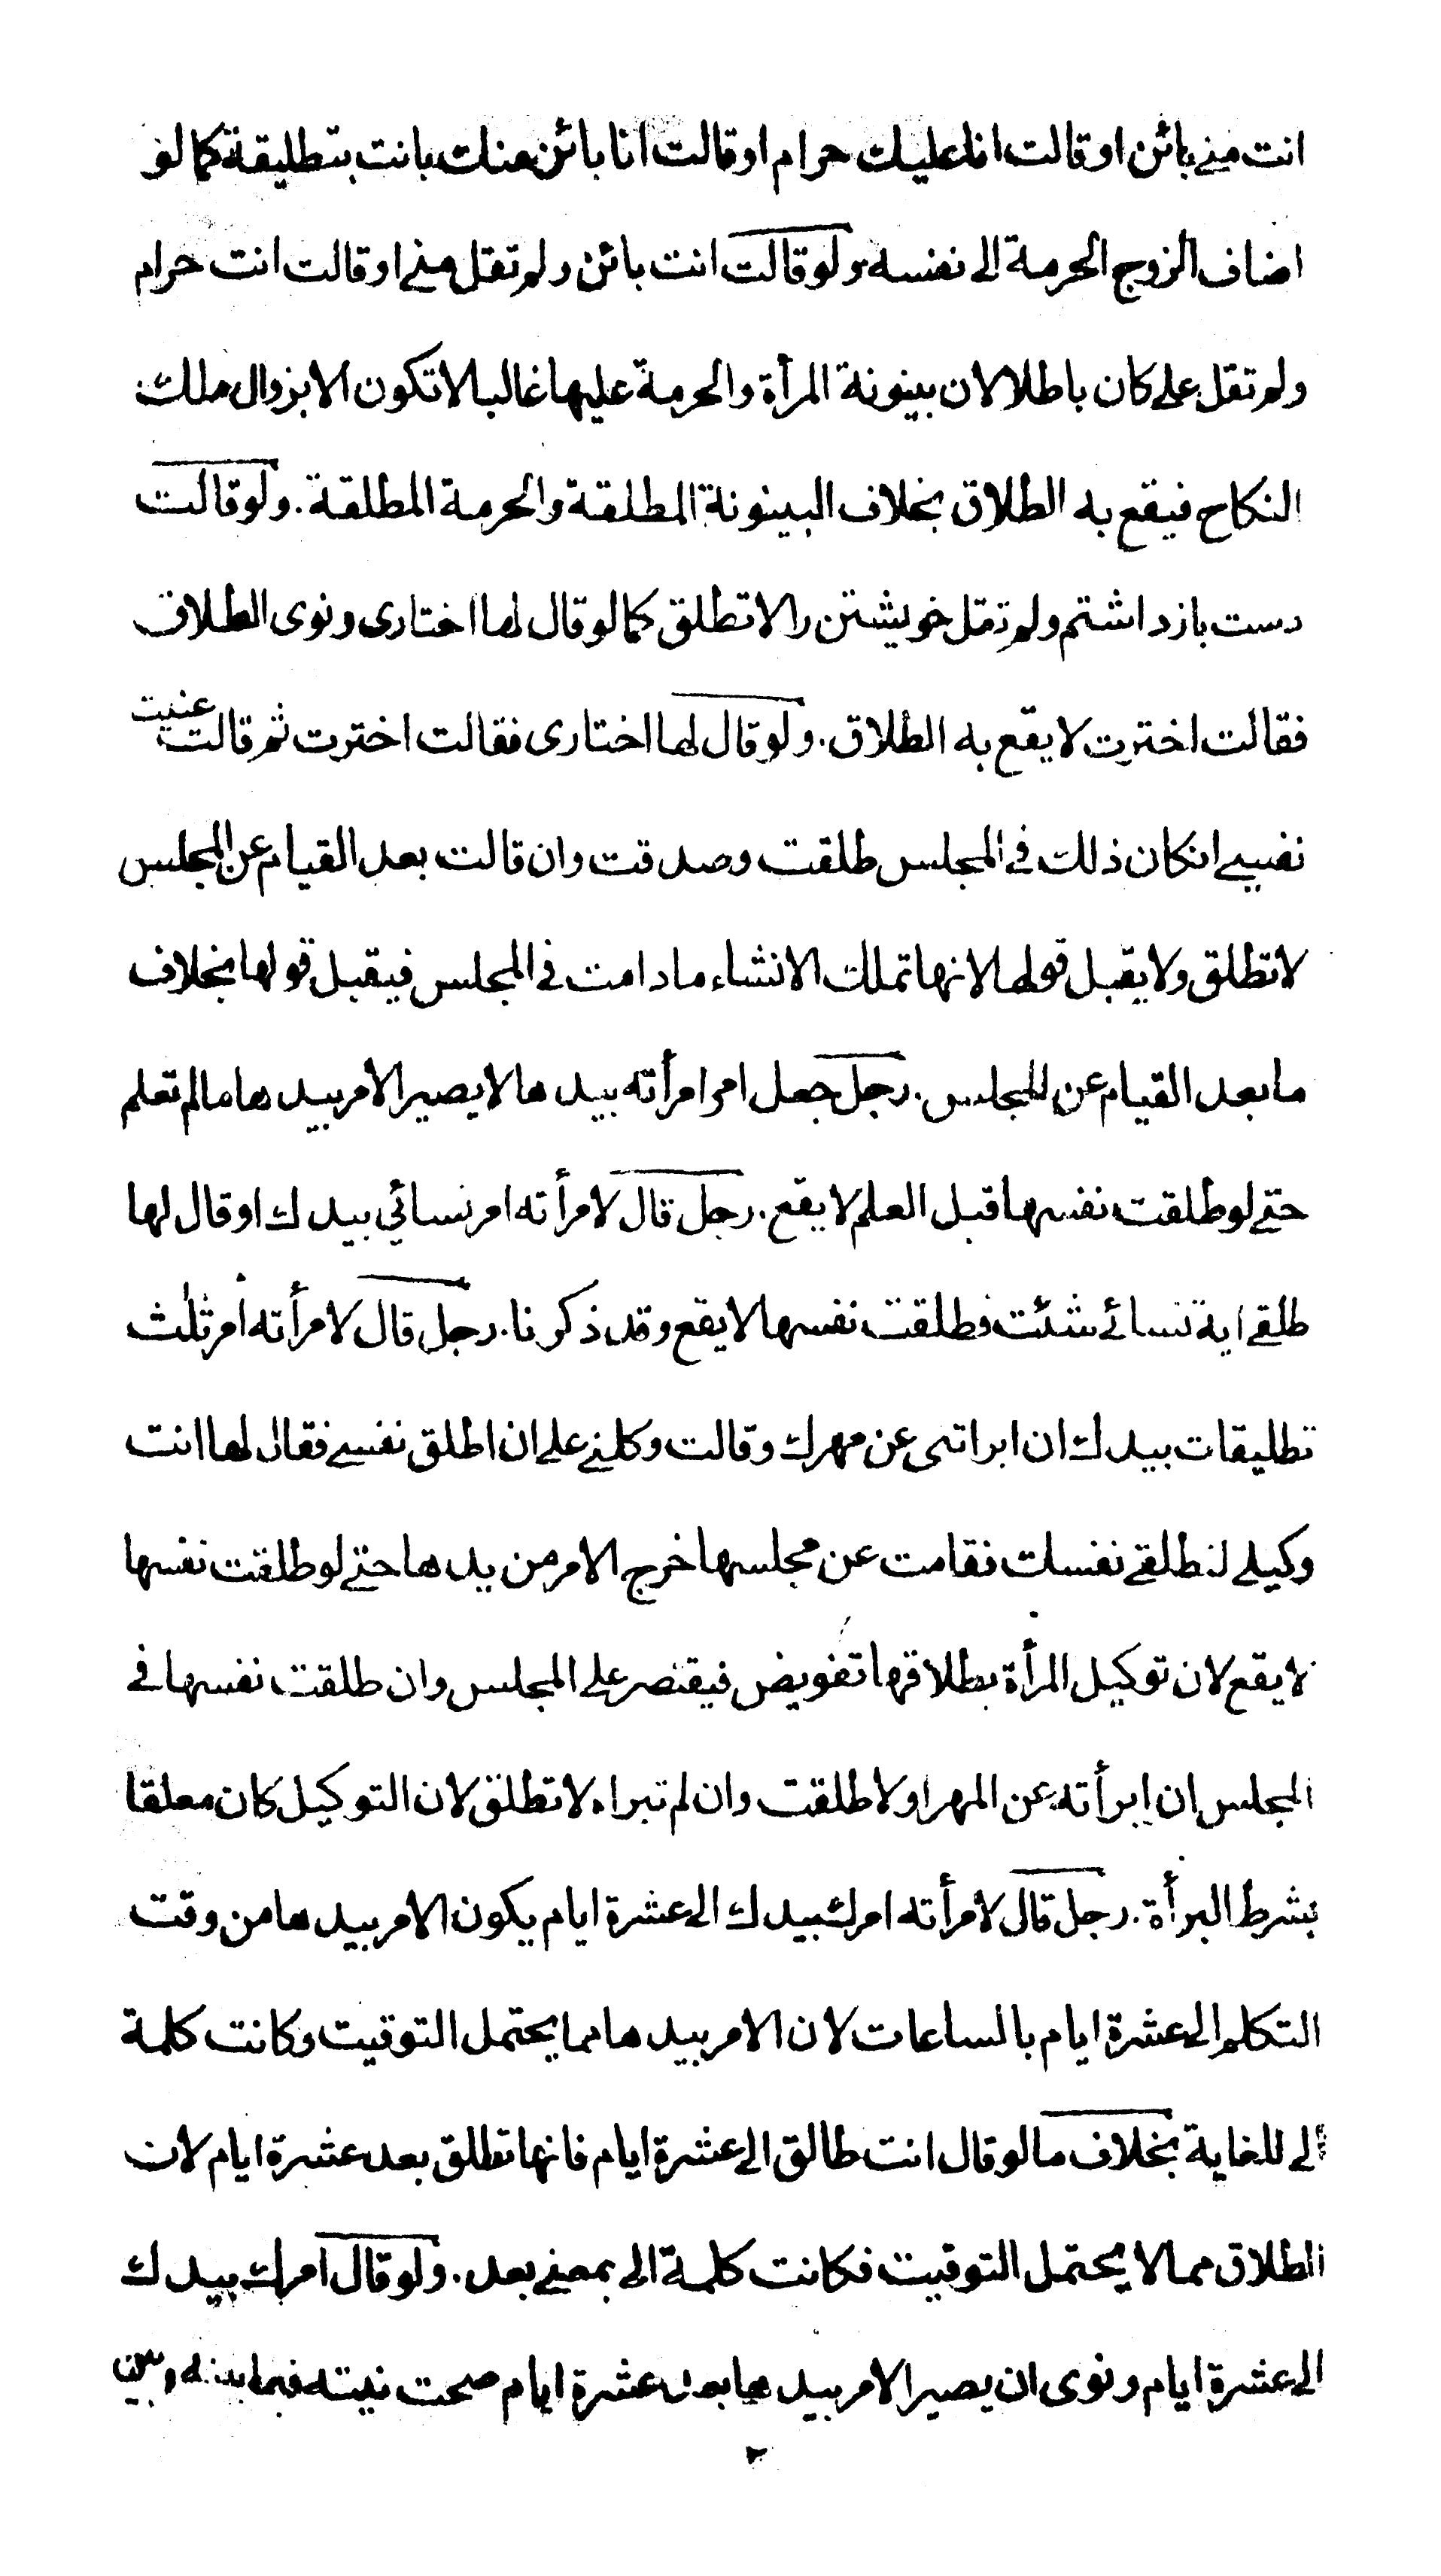 انت مني بائن او قالت انا عليك حرام او قالت انا بائن منك بانت بتطليقة كما لو
اضاف الزوج الحرمة الى نفسه ولو قالت انت بائن ولم تقل مني او قالت انت حرام
ولم تقل علي كان باطلا لان بينونة المرأة والحرمة عليها غالبا لا تكون الا بزوال ملك
النكاح فيقع به الطلاق بخلاف البينونة المطلقة والحرمة المطلقة . ولو قالت
دست باز داشتم ولم تقل خويشتن را لا تطلق كما لو قال لها اختارى ونوى الطلاق
فقالت اخترت لا يقع به الطلاق . ولو قال لها اختارى فقالت اخترت ثم قالت عنيت
نفسي انكان ذلك في المجلس طلقت وصدقت وان قالت بعد القيام عن المجلس
لا تطلق ولا يقبل قولها لانها تملك الانشاء ما دامت في المجلس فيقبل قولها بخلاف
ما بعد القيام عن المجلس . رجل جعل امر امرأته بيدها لا يصير الامر بيدها ما لم تعلم
حتى لو طلقت نفسها قبل العلم لا يقع . رجل قال لامرأته امر نسائي بيدك او قال لها
طلقي اية نسائي شئت فطلقت نفسها لا يقع وقد ذكرنا . رجل قال لامرأته امر ثلث
تطليقات بيدك ان ابراتنى عن مهرك وقالت وكلني على ان اطلق نفسي فقال لها انت
وكيلي لتطلقي نفسك فقامت عن مجلسها خرج الامر من يدها حتى لو طلقت نفسها
لا يقع لان توكيل المرأة بطلاقها تفويض فيقتصر على المجلس وان طلقت نفسها في
المجلس ان ابرأته عن المهر اولا طلقت وان لم تبراه لا تطلق لان التوكيل كان معلقا
بشرط البرأة . رجل قال لامرأته امرك بيدك الى عشرة ايام يكون الامر بيدها من وقت
التكلم الى عشرة ايام بالساعات لان الامر بيدها مما يحتمل التوقيت وكانت كلمة
الى للغاية بخلاف ما لو قال انت طالق الى عشرة ايام فانها تطلق بعد عشرة ايام لان
الطلاق مما لا يحتمل التوقيت فكانت كلمة الى بمعنى بعد . ولو قال امرك بيدك
الى عشرة ايام ونوى ان يصير الامر بيدها بعد عشرة ايام صحت نيته فيما بينه وبين